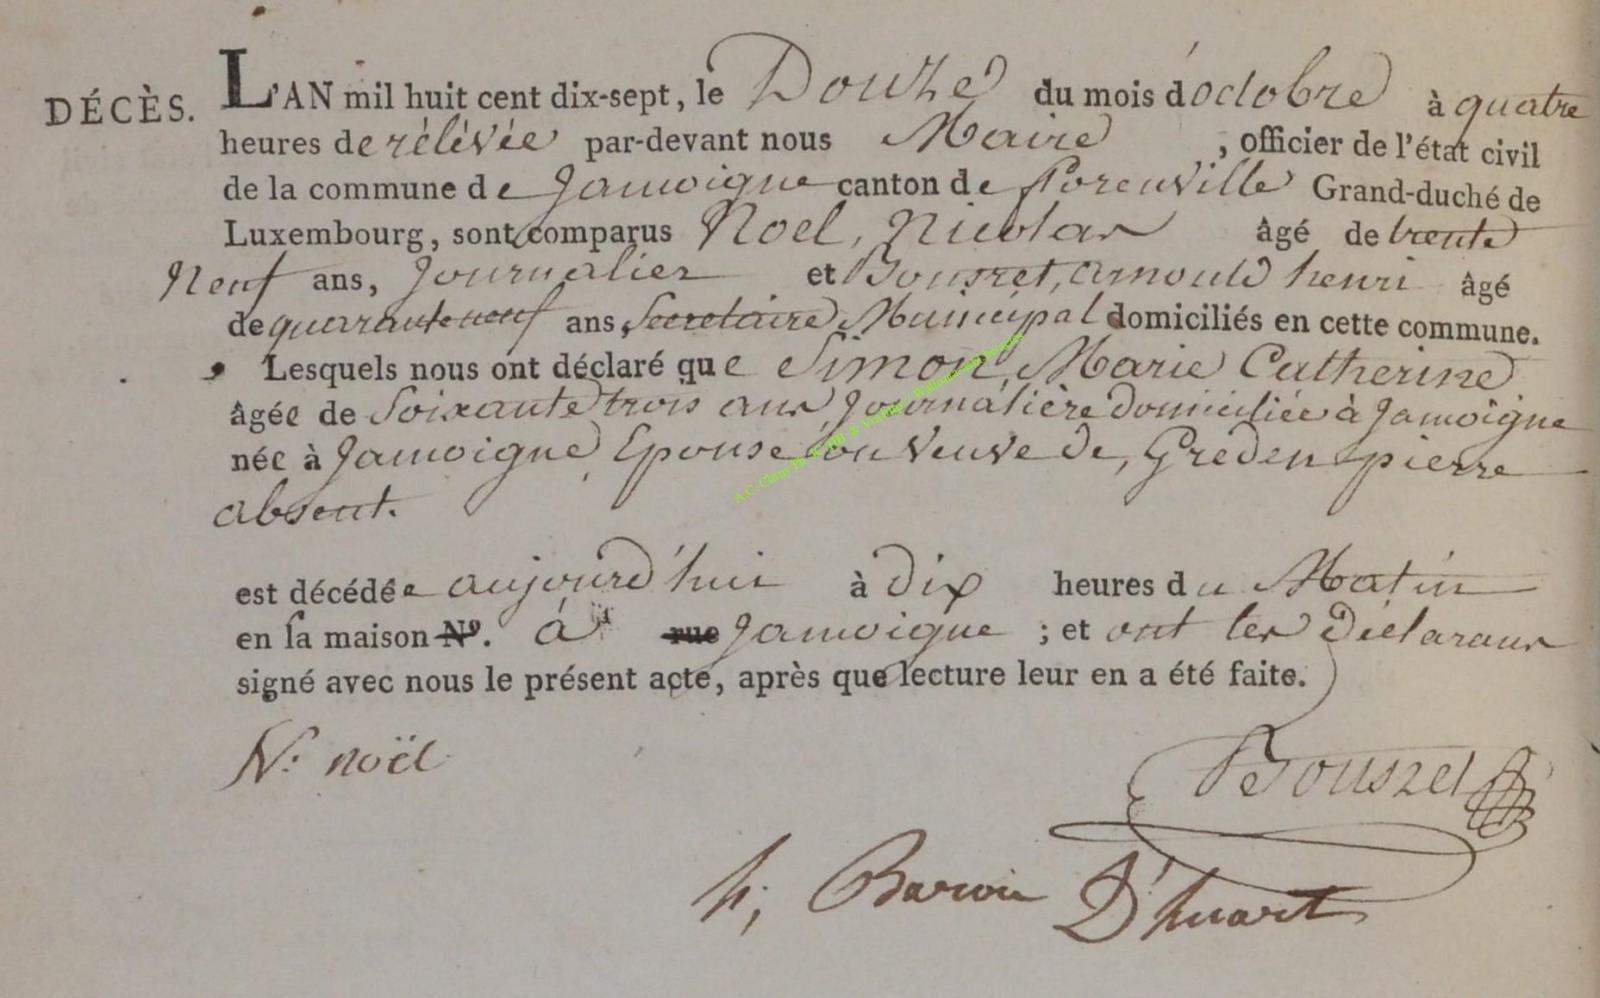 DÉCÈS. L'AN mil huit cent dix-sept, le Douze du mois d'octobre à quatre
heures de rélévée par-devant nous Maire, officier de l'état civil
de la commune de Jamoigne canton de florenville Grand-duché de
Luxembourg, sont comparus Noel, Nicolas âgé de trente
Neuf ans, Journalier et Bousret, arnould henri âgé
de quaranteneuf ans, Secretaire Municipal domiciliés en cette commune.
Lesquels nous ont déclaré que Simon, Marie Catherine
âgée de Soixante trois ans Journalière domiciliée à Jamoigne
née à Jamoigne, Epouse ou Veuve de, Greden pierre
absent.
est décédée aujourd'hui à dix heures du Matin
en sa maison N°. à rue Jamoigne ; et ont les Déclarans
signé avec nous le présent acte, après que lecture leur en a été faite.
N. noël
Bousret
h, Baron D'huart